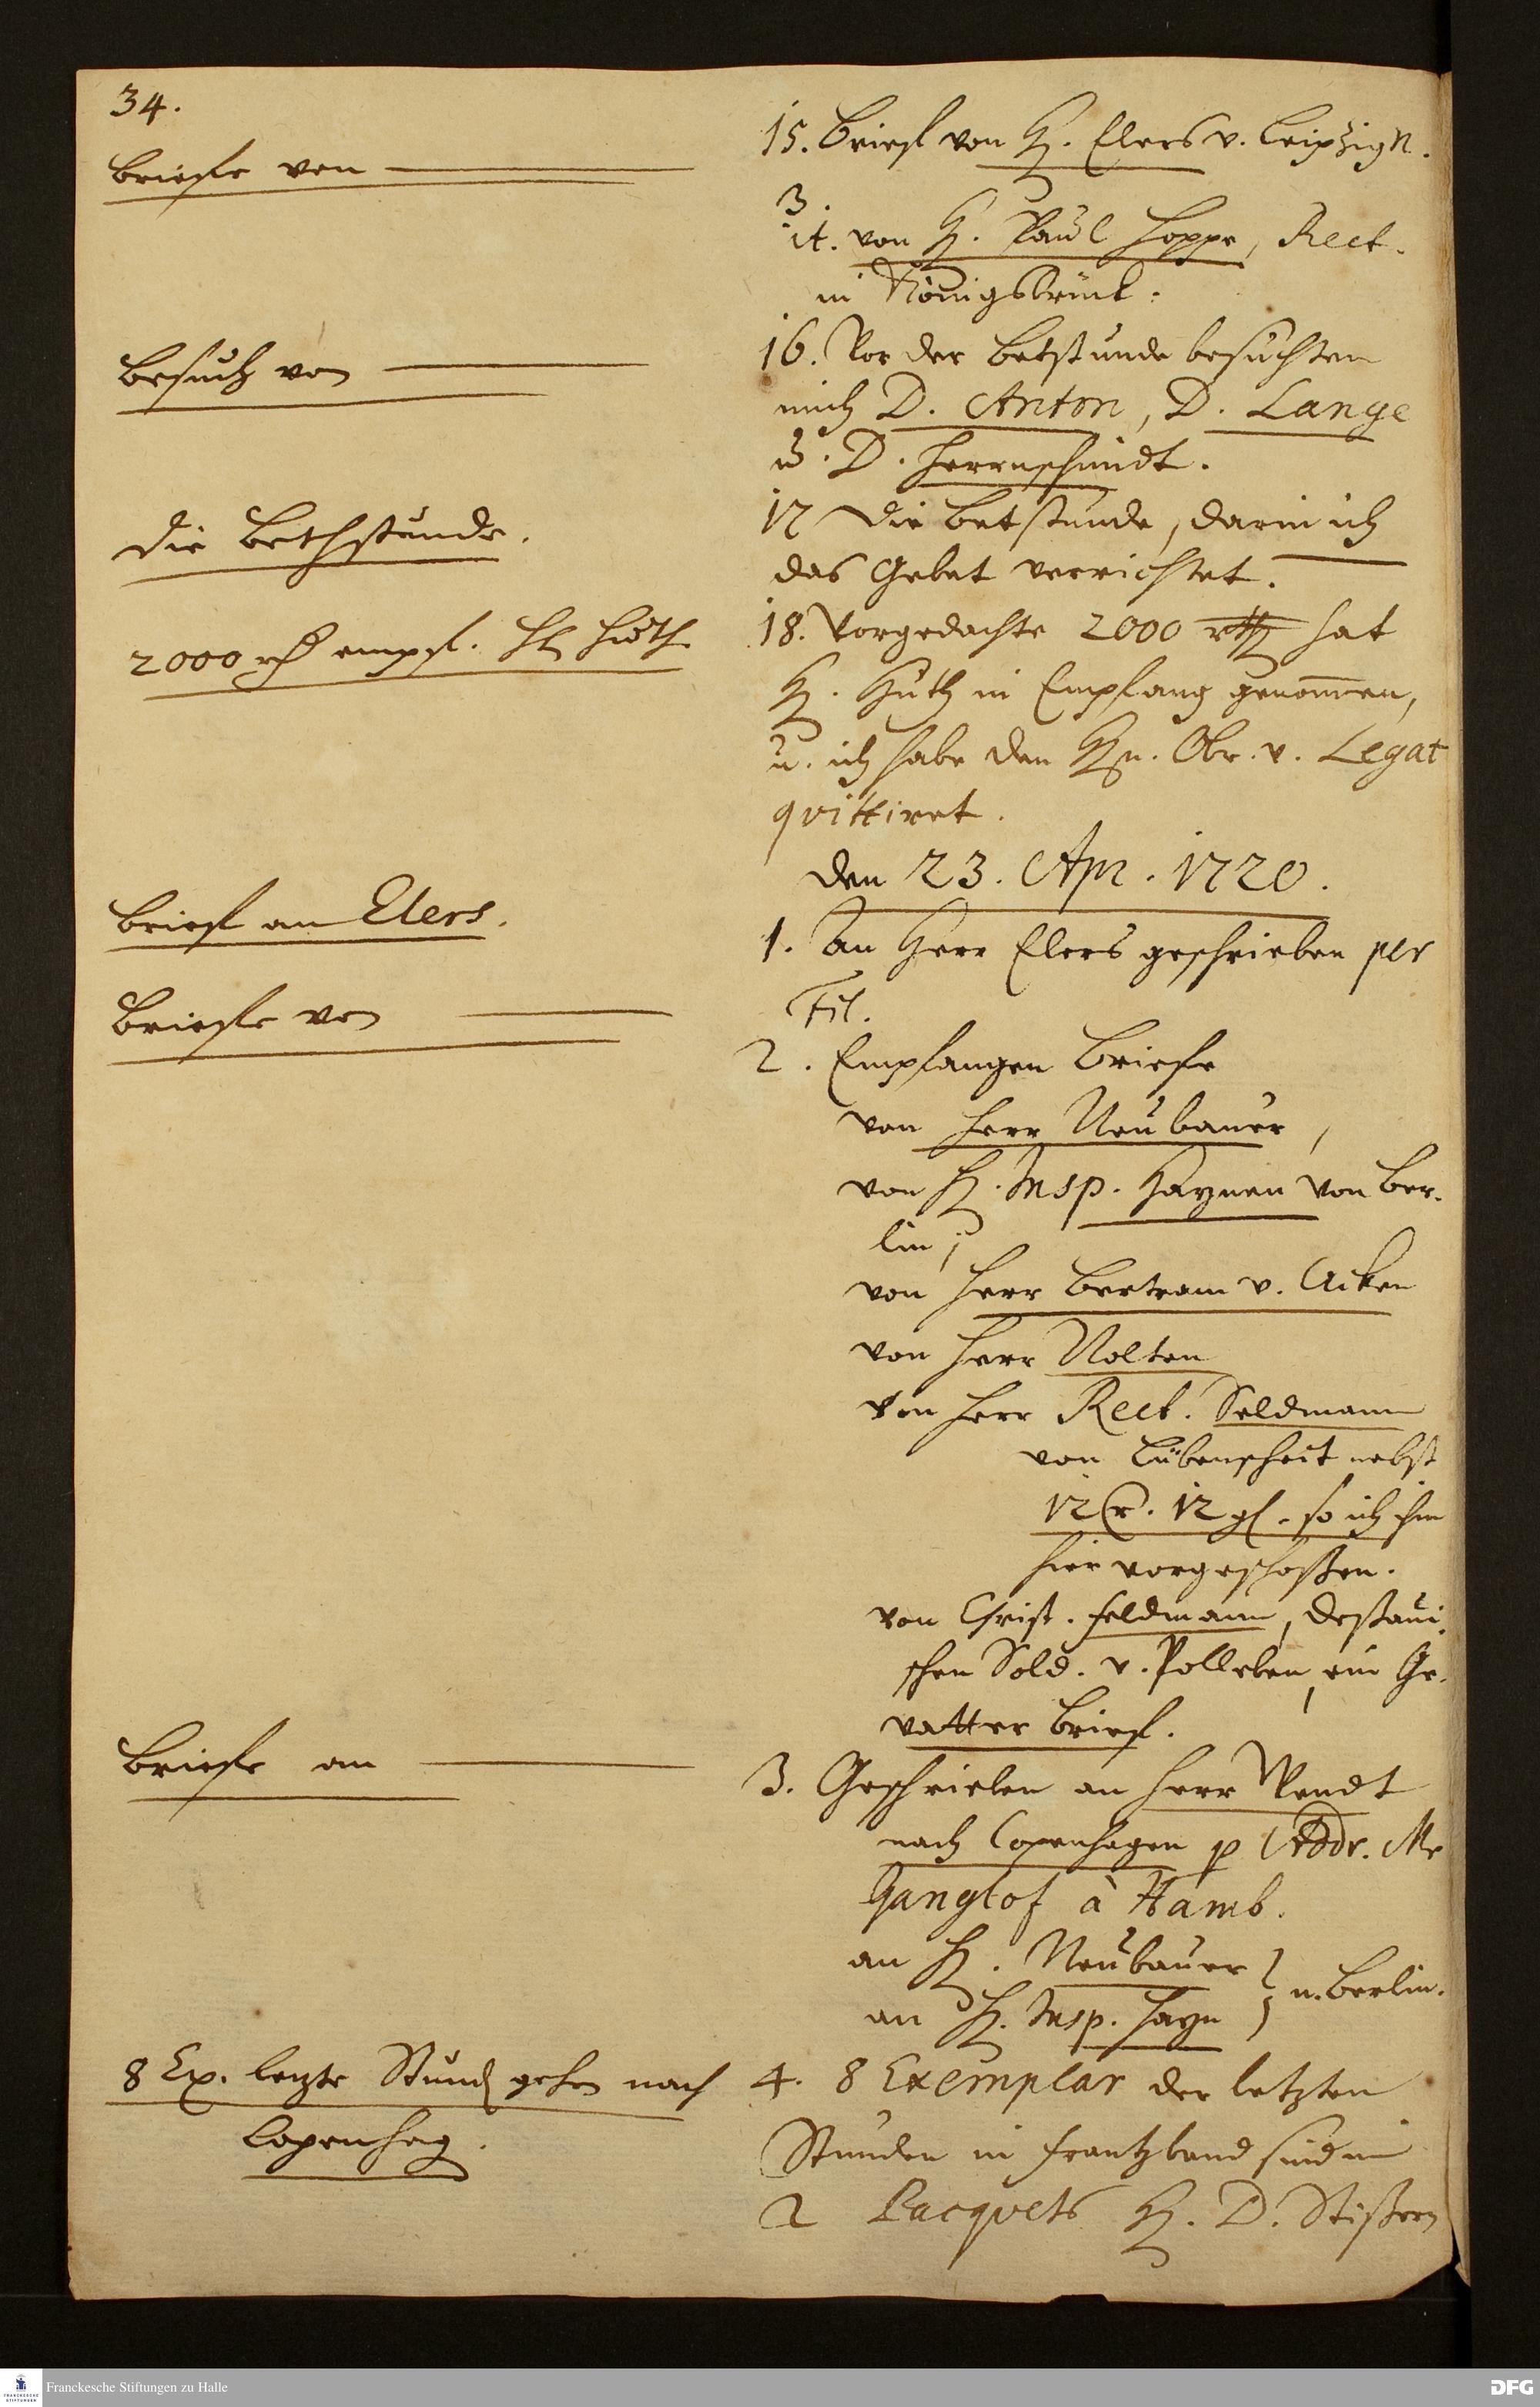 34.
Briefe von
15. Brief von H. Elers v. Leipzig N.
3.
it. von H. Paul Hoppe, Rect.
in Königsbrück.
Besuch von
16. Vor der Betstunde besuchten
mich D. Anton, D. Lange
u. D. Herrnschmidt.
Die Bethstunde.
17 Die Betstunde, darin ich
das Gebet verrichtet.
2000 rth empf. H Huth
18. Vorgedachte 2000 rthl hat
H. Huth in Empfang genommen,
u. ich habe den Hn. Obr. v. Legat
quittiret.
den 23. Apr. 1720.
Brief an Elers.
1. An Herr Elers geschrieben per
Fil.
Briefe von
2. Empfangen Briefe
von Herr Neubauer,
von H. Insp. Haynen von Ber-
lin,
von Herr Bertram v. Acken
von Herr Nolten
von Herr Rect. Seldmann
von Lübenscheit nebst
12 r. 12 gl. so ich ihm
hier vorgeschoßen.
von Christ. Feldmann, Deßaui-
schen Sold. v. Polleben, ein Ge-
vatter Brief.
Briefe an
3. Geschrieben an Herr Wendt
nach Copenhagen p Addr. Mr
Ganglof à Hamb.
an H. Neubauer
an H. Insp. Hayn } n. Berlin.
8 Ex. letzte Stund gehen nach
Copenhag.
4. 8 Exemplar der letzten
Stunden in Frantzband sind in
2 Pacquets H. D. Stißern
Franckesche Stiftungen zu Halle
FRANCKESCHE
STIFTUNGEN
DFG